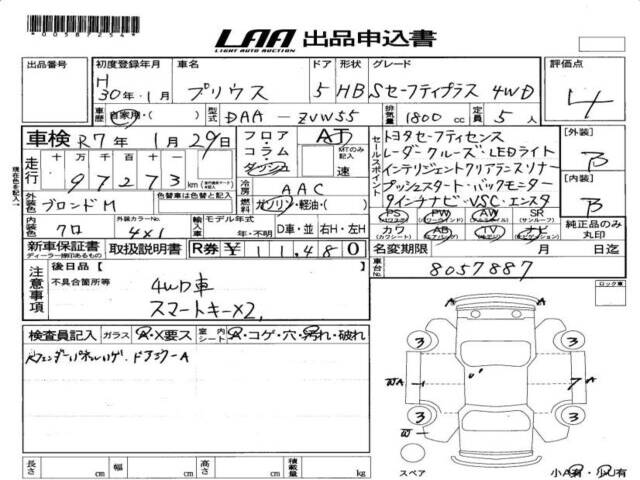 *00587254*
LAA 出品申込書
LIGHT AUTO AUCTION
出品番号 初度登録年月 車名 ドア 形状 グレード 評価点
H 30年・1月 プリウス 5 HB Sセーフティプラス 4WD 4
車歴 自家用・( ) 型式 DAA-ZVW55 排気量 1800 cc 定員 5人
車検 R7年 1月 29日 フロア・コラム・ダッシュ AT MTのみ記入 速
セールスポイント トヨタセーフティセンス
レーダークルーズ・LEDライト
インテリジェントクリアランスソナー
プッシュスタート・バックモニター
9インチナビ・VSC・エンスタ
[外装] B
[内装] B
走行 十万 万 千 百 十
97273 km
冷房 AAC
外装色 ブロンドM 色替車は色替と記入 燃料 ガソリン・軽油・( )
PS PW AW SR
(サンルーフ)
カワ AB TV ナビ
純正品のみ丸印
内装色 クロ 外装カラーNo. 4X1 輸入車 モデル年式 年・不明 D車・並 右H・左H
新車保証書 取扱説明書 R券 ¥11,480
ディーラー捺印あるもの
名変期限 月 日迄
車台No. 8057887
注意事項 後日品[ ]
不具合箇所等
4WD車
スマートキー×2,
ロック車
検査員記入 ガラス A・X要ス 室内シート A・コゲ・穴・汚れ・破れ
A A
3 3
WA A
3 3
W
スペア 小A有・少U有
長さ cm 幅 cm 高さ cm 積載量 kg